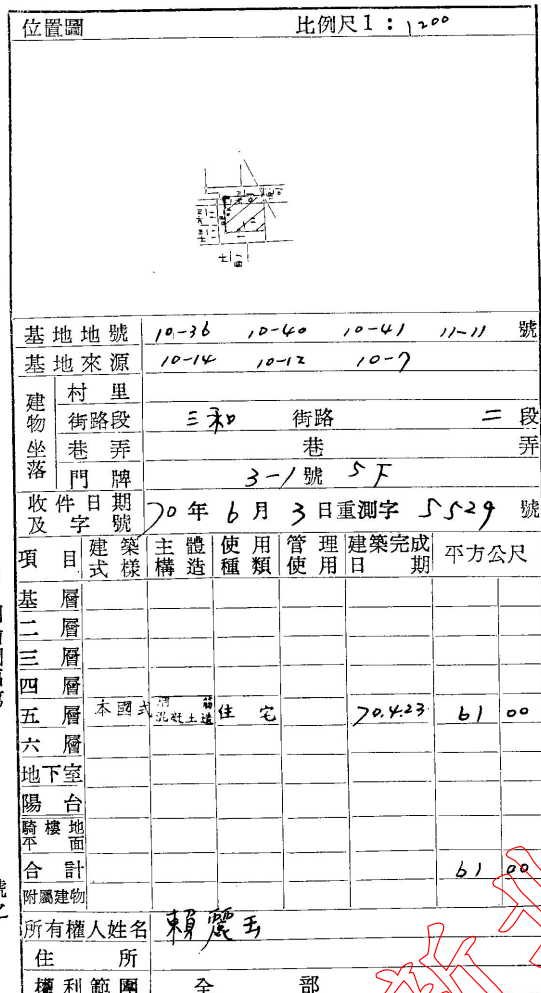 位置圖 比例尺1:1200
基地地號 10-36 10-40 10-41 11-11 號
基地來源 10-14 10-12 10-7
建物坐落 村里
街路段 三和 街路 二 段
巷弄 巷 弄
門牌 3-1號 5F
收件日期及字號 70年6月3日重測字 5529 號
項目 建築式樣 主體構造 使用種類 管理使用 建築完成日期 平方公尺
基層
二層
三層
四層
五層 本國式 鋼筋混凝土造 住宅 70.4.23 61 00
六層
地下室
陽台
騎樓地平面
合計 61 00
附屬建物
所有權人姓名 賴麗玉
住所
權利範圍 全部